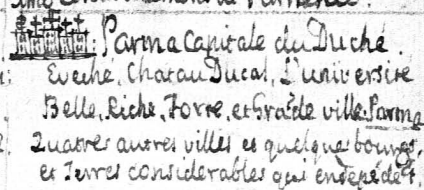 Parma Capitale du Duché.
1: Eveché, Chatau Ducal, L'universite
Belle, Riche, Forte, et Grā.de ville. Parma
2. Quatres autres villes et quelque bourgs,
et Terres considerables qui endepēdēt.